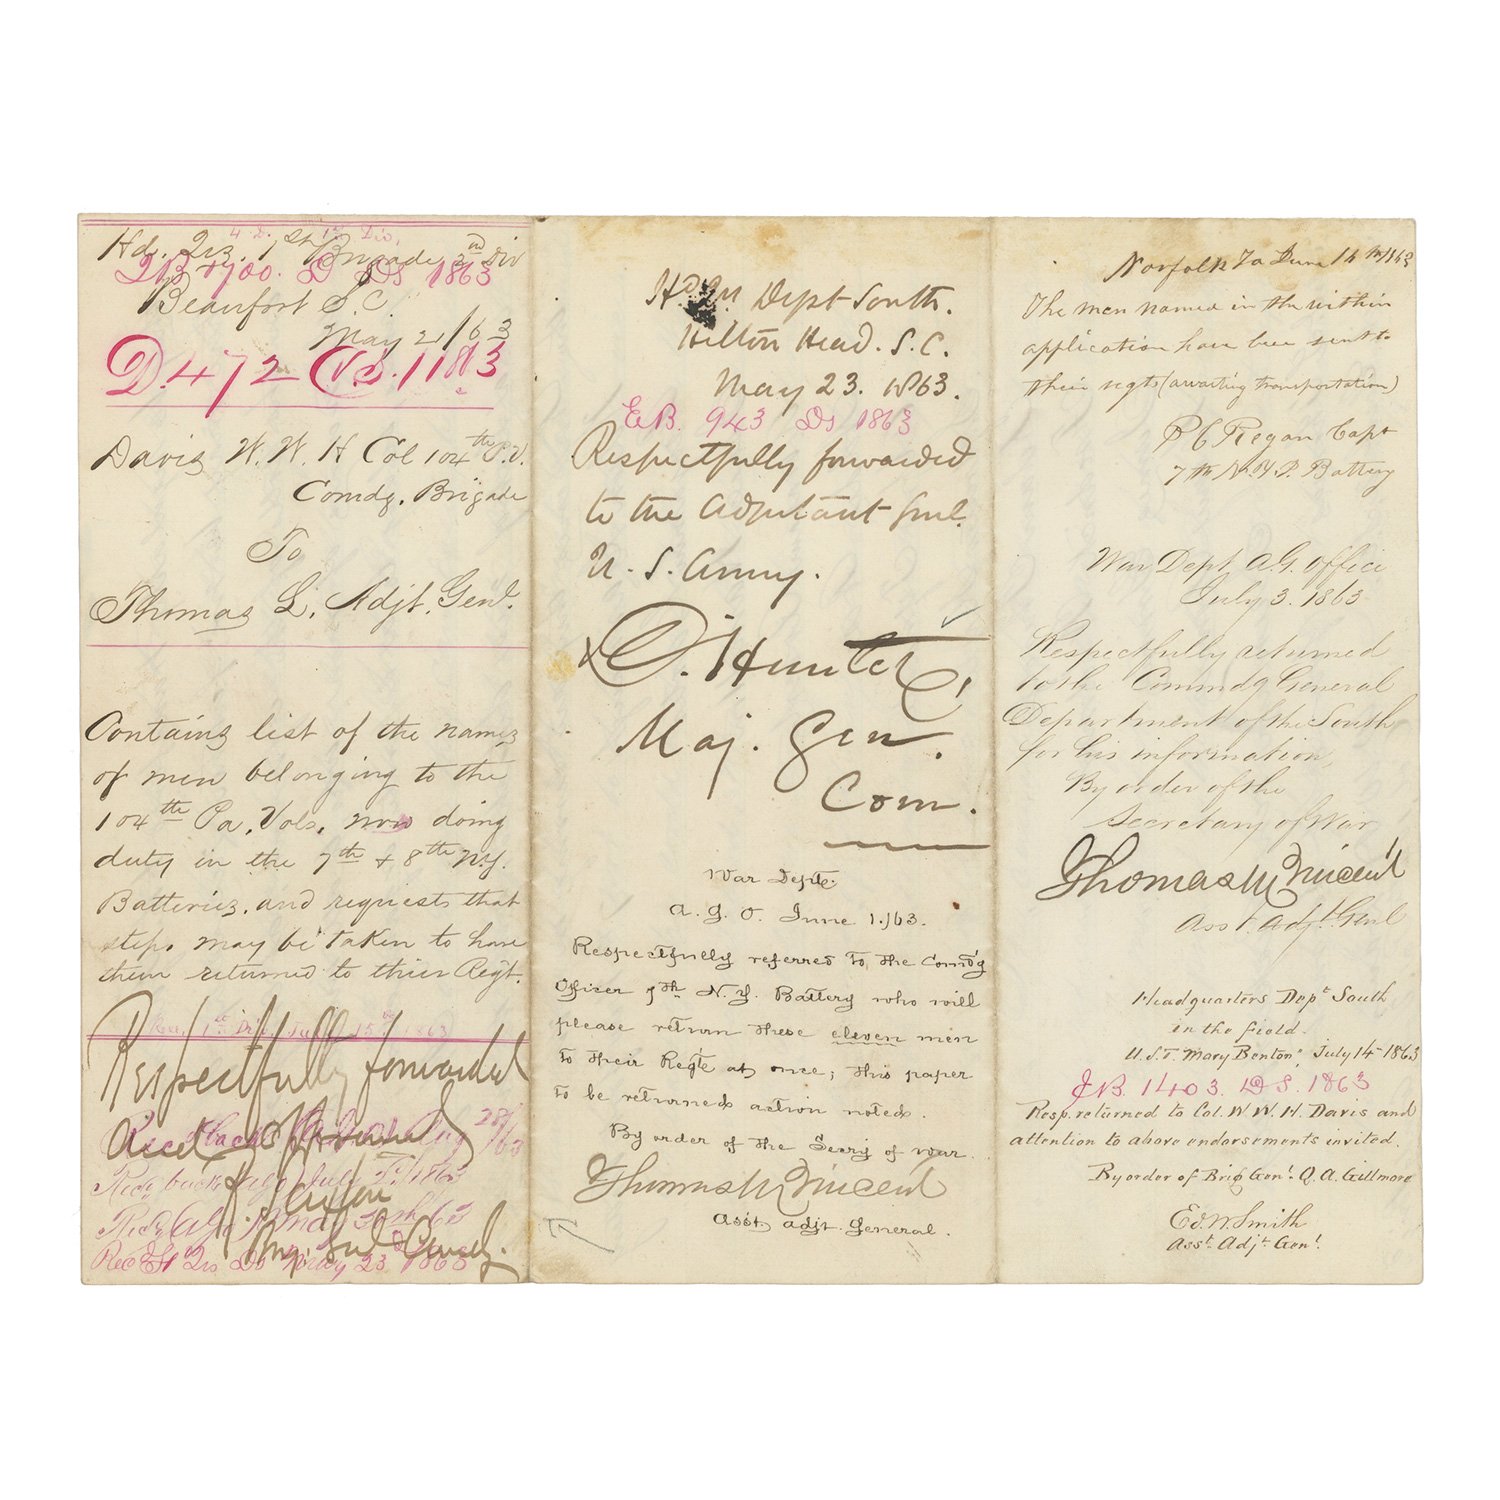 4. D. 1st Div.
Hd. Qrs. 1st Brigade 2nd Div
1863
Beaufort S.C.
May 21/63
D. 472 (D.S.) 1863
Davis W. W. H Col 104th P.V.
Comdg. Brigade
To
Thomas L. Adjt. Genl.
Contains list of the names
of men belonging to the
104th Pa. Vols. now doing
duty in the 7th & 8th N.Y.
Batteries, and requests that
steps may be taken to have
them returned to their Regt.
1st Div. July 15th 1863
Respectfully forwarded
Recd back Aug 28/63
Recd back July 1863
Recd
R. Saxton
Brig. Genl Comdg.
Rec'd Hd Qrs Ds May 23d 1863
Hd. Qrs Dept South.
Hilton Head. S.C.
May 23. 1863.
E.B. 943 Ds 1863
Respectfully forwarded
to the Adjutant Genl.
U. S. Army.
D. Hunter,
Maj. Gen.
Com.
War Dept.
A. G. O. June 1./63.
Respectfully referred to the Comd'g
Officer 7th N. Y. Battery who will
please return these eleven men
to their Reg'te at once; this paper
to be returned & action noted.
By order of the Sec'ry of War.
Thomas M Vincent
Ass't adjt. General.
Norfolk Va June 14th/1863
The men named in the within
application have been sent to
their regts (awaiting transportation)
P C Regan Capt
7th N.Y. Battery
War Dept, A.G. Office
July 3. 1863
Respectfully returned
to the Commdg General
Department of the South,
for his information,
By order of the
Secretary of War
Thomas M Vincent
Asst. Adjt Genl
Headquarters Dept South
in the field.
U.S.T. "Mary Benton" July 14- 1863
J.B. 1403. D S. 1863
Resp. returned to Col. W W. H. Davis and
attention to above endorsements invited.
By order of Brig Genl. Q. A. Gillmore
Ed. W. Smith
Asst. Adjt. Genl.